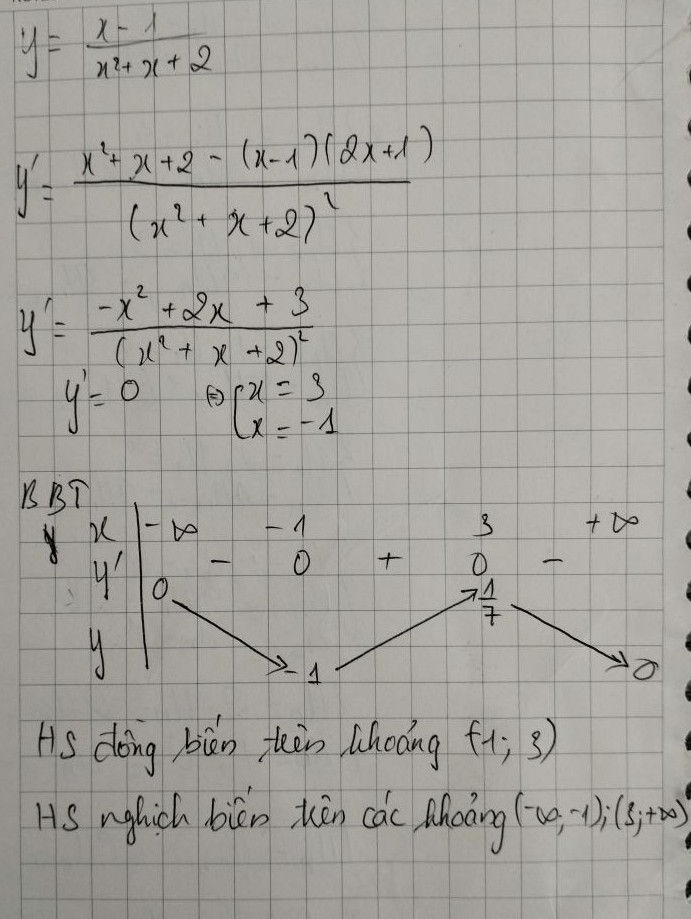 y = x - 1 / x² + x + 2
y' = x² + x + 2 - (x - 1)(2x + 1) / (x² + x + 2)²
y' = -x² + 2x + 3 / (x² + x + 2)²
y' = 0 ⇔ [ x = 3
x = -1
BBT
x | -∞ -1 3 +∞
y' | - 0 + 0 -
y | 0 -1 1/7 0
HS đồng biến trên khoảng (-1; 3)
HS nghịch biến trên các khoảng (-∞; -1); (3; +∞)